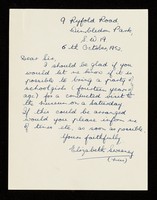 9 Ryfold Road
Wimbledon Park,
S.W. 19
6th October, 1952
Dear Sir,
I should be glad if you
would let me know if it is
possible to bring a party of
schoolgirls (fourteen years of
age) for a conducted visit to the
Museum on a Saturday.
If this could be arranged
would you please inform me
of times etc, as soon as possible.
Yours faithfully,
Elizabeth Sweeney
(Miss)